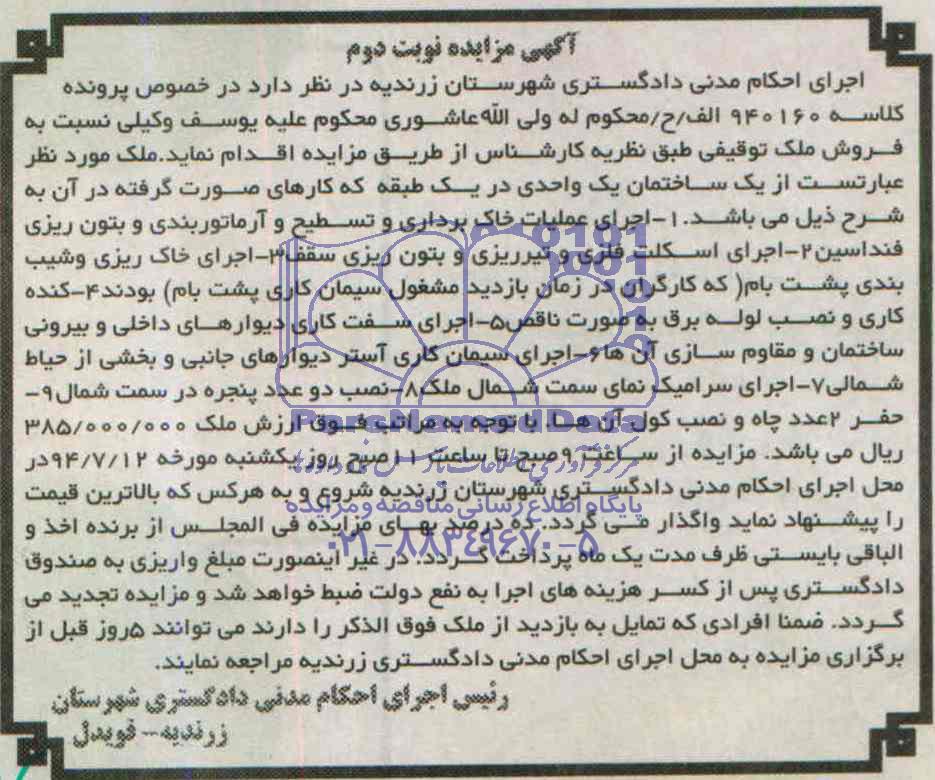 آگهی مزایده نوبت دوم
اجرای احکام مدنی دادگستری شهرستان زرندیه در نظر دارد در خصوص پرونده
کلاسه ۹۴۰۱۶۰ الف/ح/محکوم له ولی الله عاشوری محکوم علیه یوسف وکیلی نسبت به
فروش ملک توقیفی طبق نظریه کارشناس از طریق مزایده اقدام نماید.ملک مورد نظر
عبارتست از یک ساختمان یک واحدی در یک طبقه که کارهای صورت گرفته در آن به
شرح ذیل می باشد.۱-اجرای عملیات خاک برداری و تسطیح و آرماتوربندی و بتون ریزی
فنداسین۲-اجرای اسکلت فلزی و تیرریزی و بتون ریزی سقف۳-اجرای خاک ریزی وشیب
بندی پشت بام( که کارگران در زمان بازدید مشغول سیمان کاری پشت بام) بودند۴-کنده
کاری و نصب لوله برق به صورت ناقص۵-اجرای سفت کاری دیوارهای داخلی و بیرونی
ساختمان و مقاوم سازی آن ها۶-اجرای سیمان کاری آستر دیوارهای جانبی و بخشی از حیاط
شمالی۷-اجرای سرامیک نمای سمت شمال ملک۸-نصب دو عدد پنجره در سمت شمال۹-
حفر ۲عدد چاه و نصب کول آن ها. با توجه به مراتب فوق ارزش ملک ۳۸۵/۰۰۰/۰۰۰
ریال می باشد. مزایده از ساعت ۹صبح تا ساعت ۱۱صبح روز یکشنبه مورخه ۹۴/۷/۱۲در
محل اجرای احکام مدنی دادگستری شهرستان زرندیه شروع و به هرکس که بالاترین قیمت
را پیشنهاد نماید واگذار می گردد. ده درصد بهای مزایده فی المجلس از برنده اخذ و
الباقی بایستی ظرف مدت یک ماه پرداخت گردد. در غیر اینصورت مبلغ واریزی به صندوق
دادگستری پس از کسر هزینه های اجرا به نفع دولت ضبط خواهد شد و مزایده تجدید می
گردد. ضمنا افرادی که تمایل به بازدید از ملک فوق الذکر را دارند می توانند ۵روز قبل از
برگزاری مزایده به محل اجرای احکام مدنی دادگستری زرندیه مراجعه نمایند.
رئیس اجرای احکام مدنی دادگستری شهرستان
زرندیه- قویدل
ParsNamadData
پایگاه اطلاع رسانی مناقصه و مزایده
۰۲۱-۸۸۳۴۹۶۷۰-۵